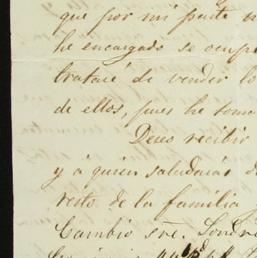 que por mi parte
he encargado se ocupe
trataré de vender lo
de ellos, pues he
Deseo recibir
y á quien saludarás d
resto de la familia
Cambio sre. Londre